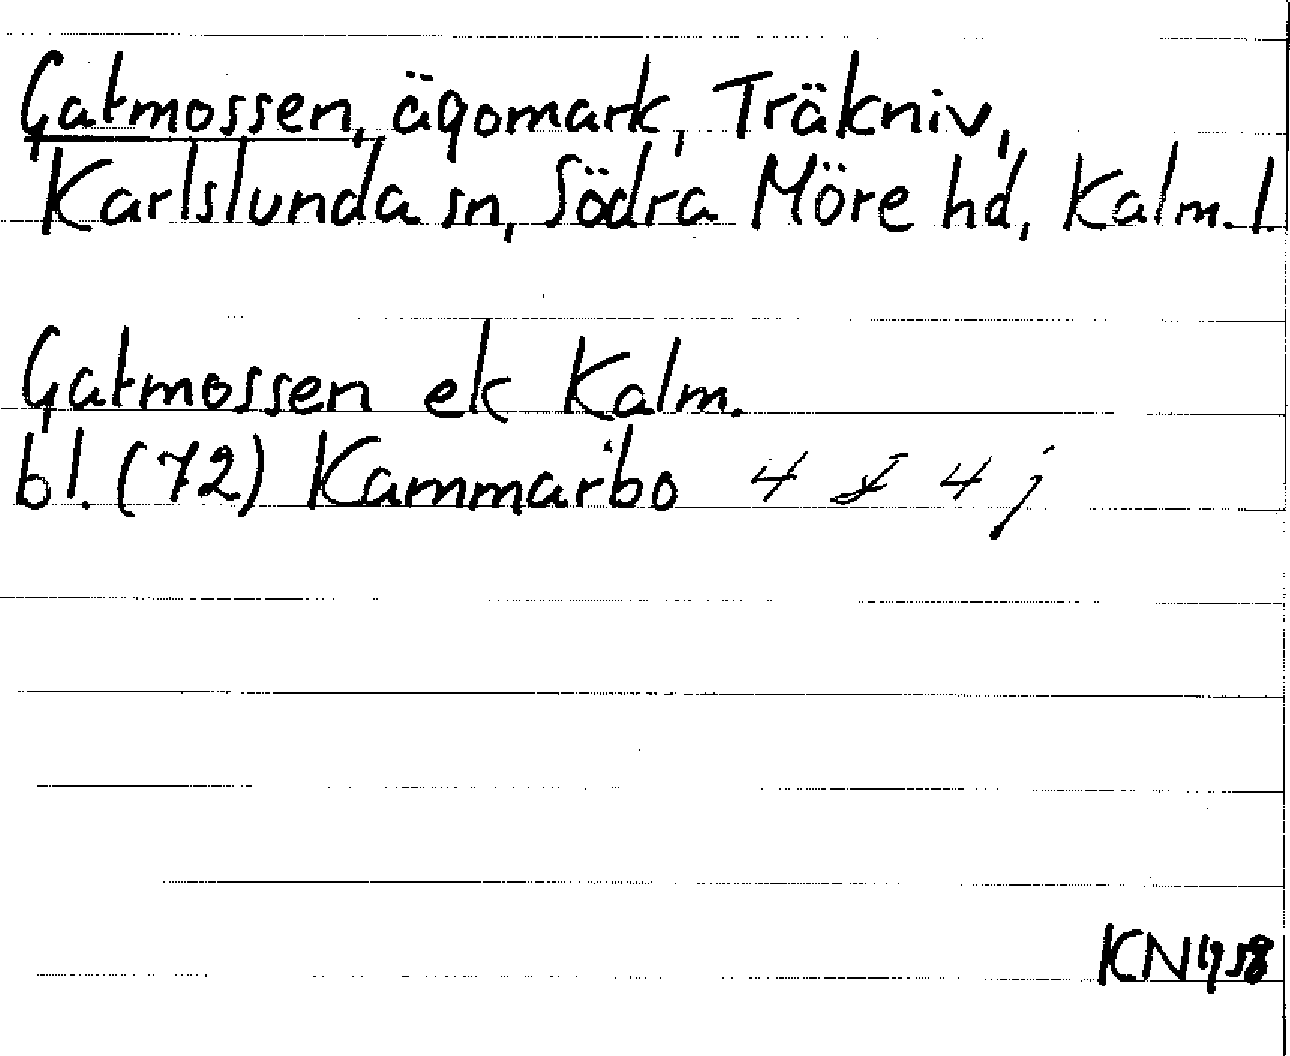 Gatmossen, ägomark, Träkniv,
Karlslunda sn, Södra Möre hd, Kalm. l.
Gatmossen ek Kalm.
bl. (72) Kammarbo 4 I 4 j
KN 1958